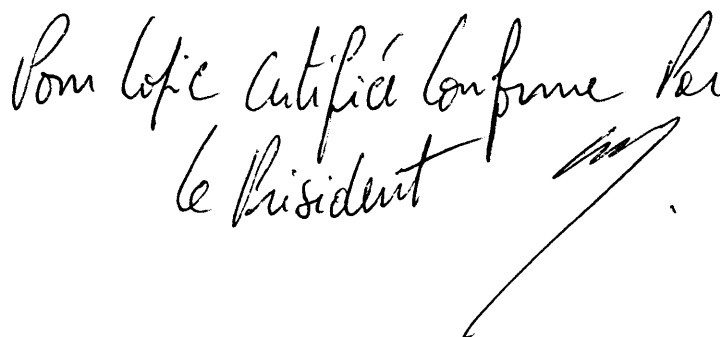 Pour Copie Certifiée Conforme Par
le Président